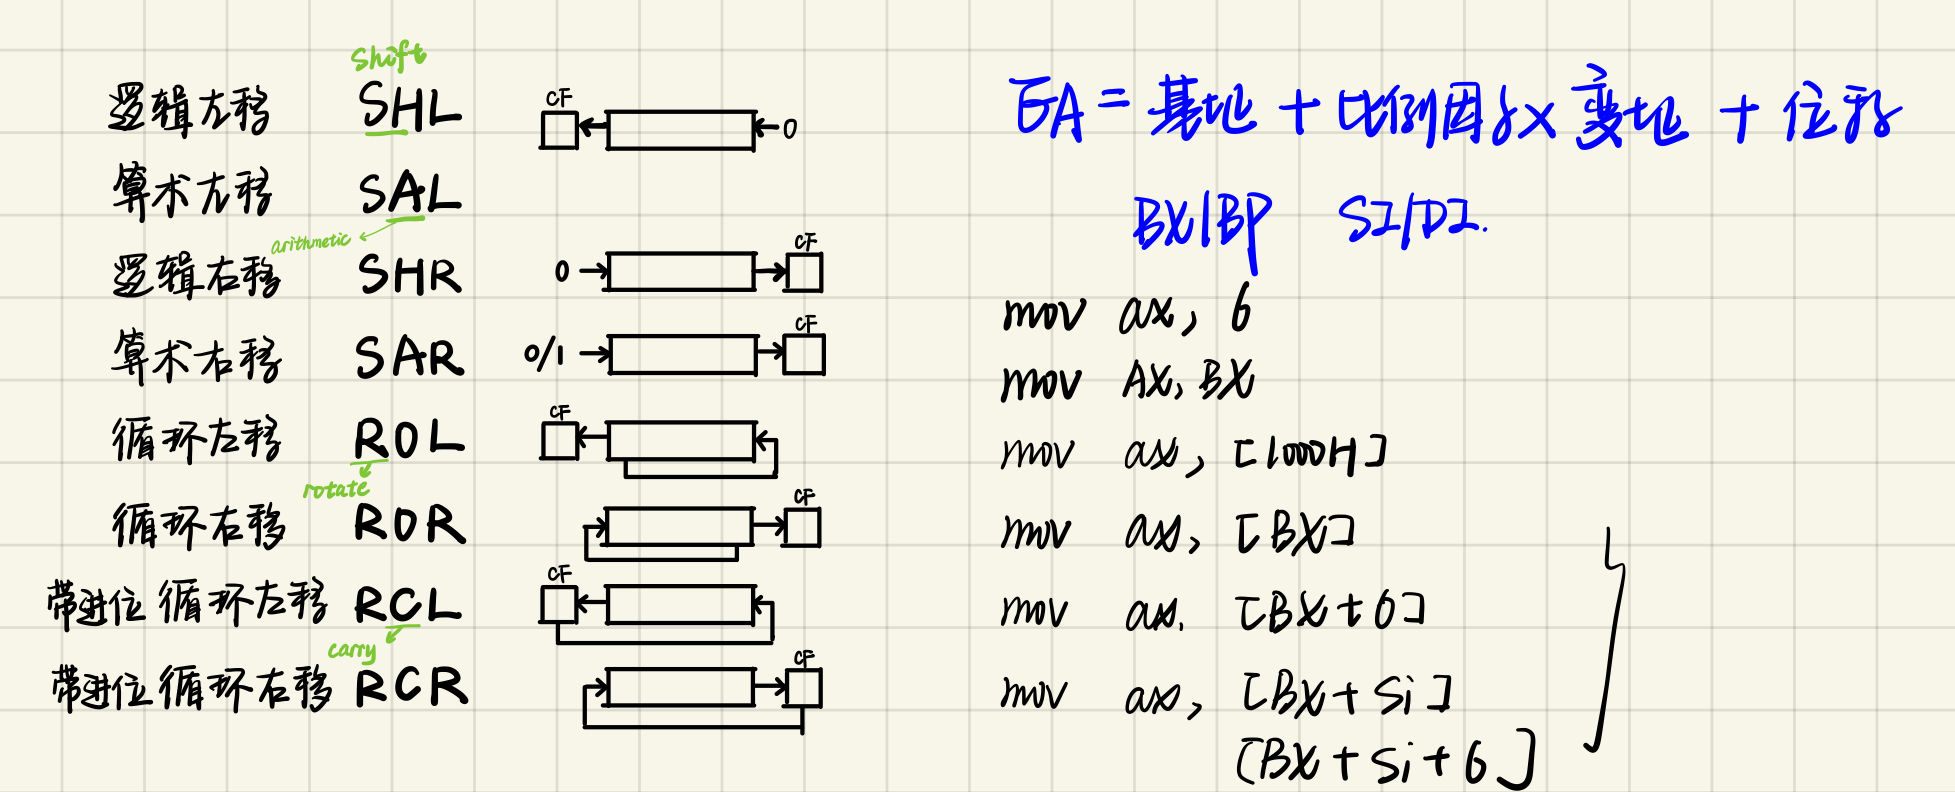 shift
逻辑左移 SHL CF 0
算术左移 SAL
arithmetic
逻辑右移 SHR 0 CF
算术右移 SAR 0/1 CF
循环左移 ROL CF
rotate
循环右移 ROR CF
带进位循环左移 RCL CF
carry
带进位循环右移 RCR CF
EA = 基地 + 比例因子 x 变地 + 位移
BX/BP SI/DI.
mov ax, 6
mov AX, BX
mov ax, [1000H]
mov ax, [BX]
mov ax. [BX+6]
mov ax, [BX+Si]
[BX+Si+6]